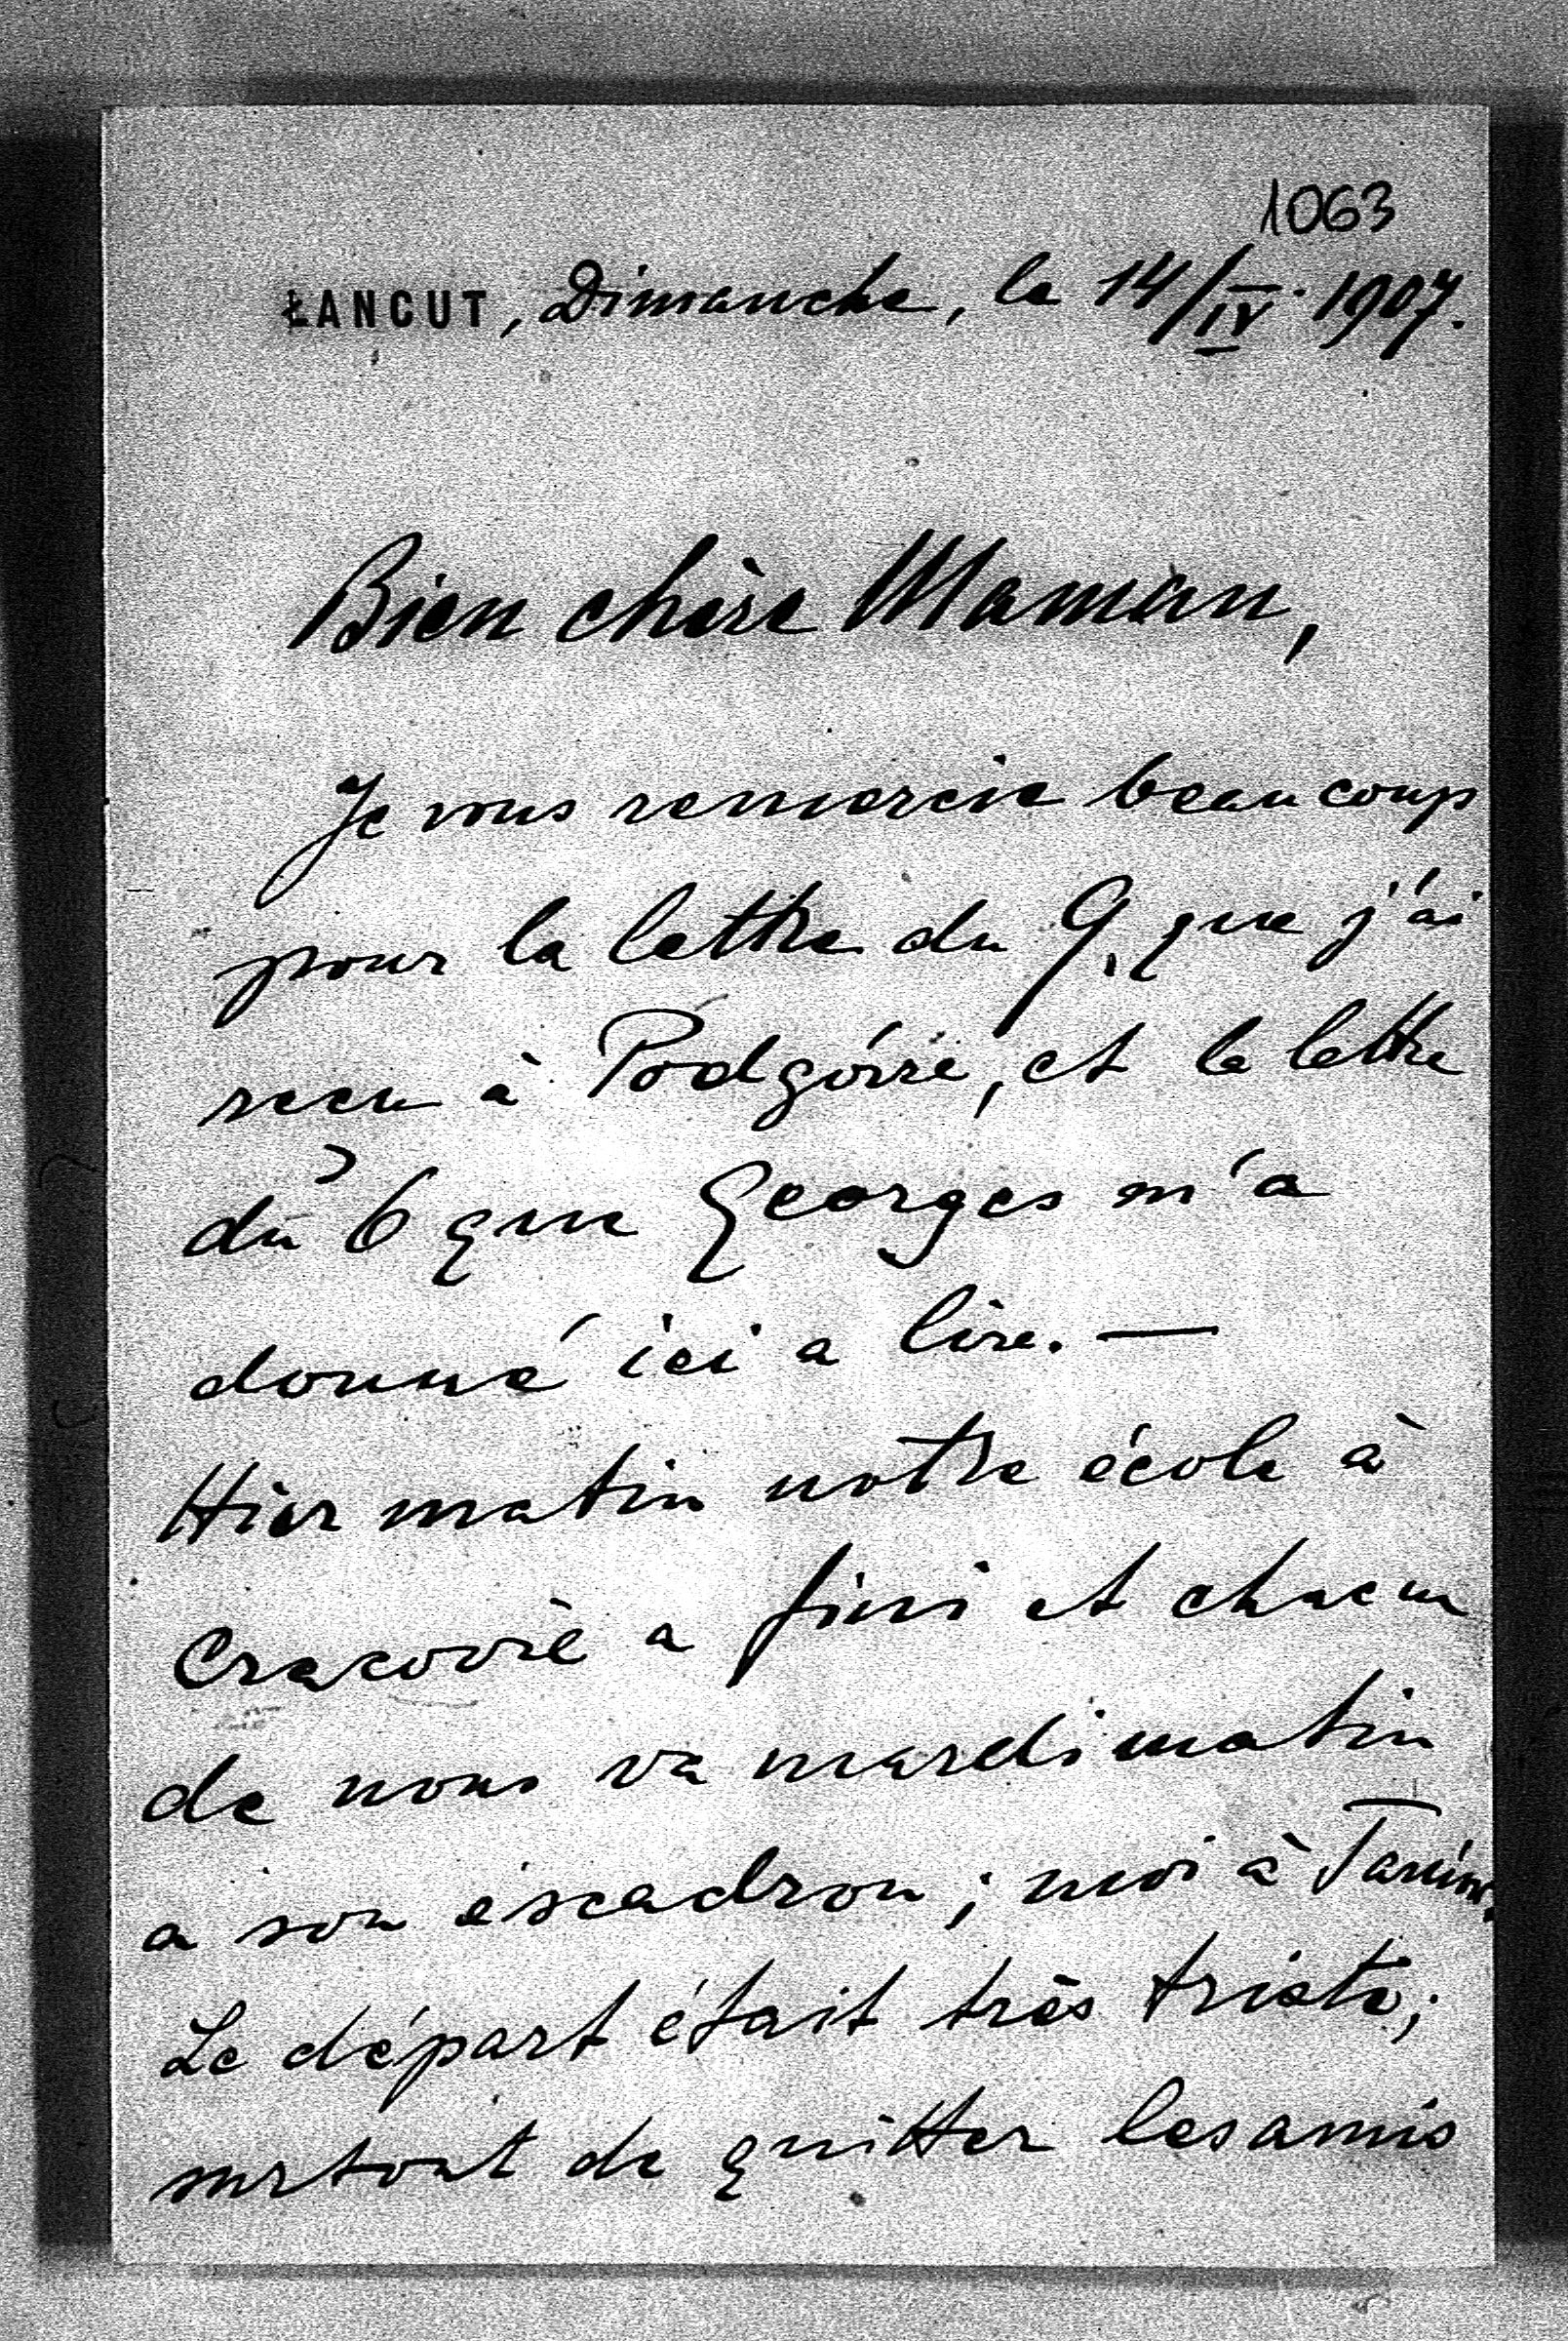 1063
ŁANCUT, Dimanche, le 14/IV. 1907.
Bien chère Maman,
Je vous remercie beaucoup
pour la lettre du 9. que j'ai
recu à et la lettre
du 6 que Georges m'a
donné ici a lire. —
Hier matin notre école à
Cracovie a fini et chacun
de nous va mardi matin
a son escadron; moi à
Le départ était très triste;
surtout de quitter les amis